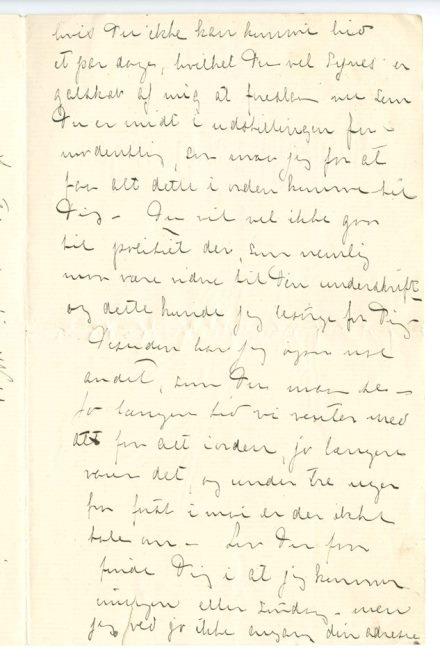 hvis Du ikke kan komme hid
et par dage, hvilket Du vel synes er
galskab af mig at foreslaa nu som
Du er midt i udstillingen
saa maa jeg for at
faa alt dette i orden komme til
Dig – Du vil vel ikke gaa
til politiet der, som nemlig
maa være vidne til Din underskrift –
og dette kunde jeg besørge for Dig –
Desuden har jeg ogsaa noe
andet, som Du maa se –
Jo længere tid vi venter med
att faa alt i orden, jo længere
varer det, og under tre uger
fra først i mai er der ikke
tale om – Saa Du faar
finde Dig i at jeg kommer
imorgen eller Søndag – men
jeg ved jo ikke engang din adresse